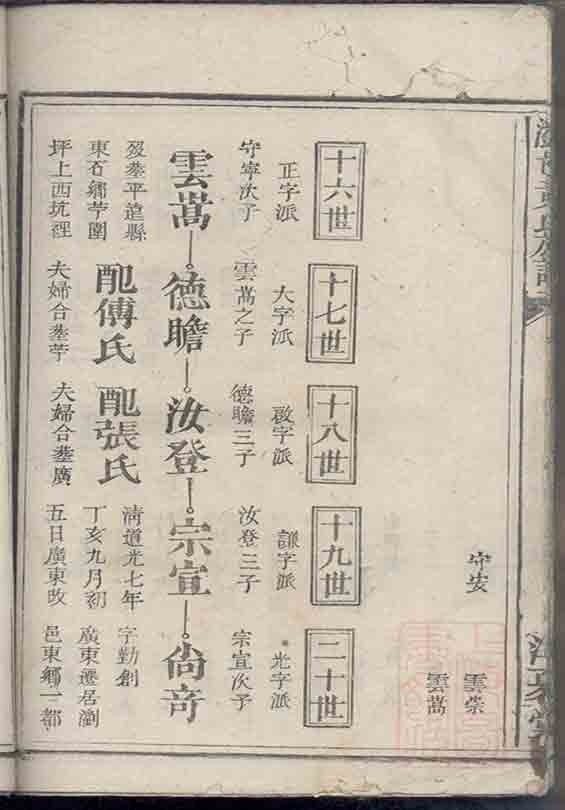 守安
雲崇
雲萬
十六世
正字派
守寧次子
雲萬
歿塟平遠縣
東石鄉苧園
坪上西坑裡
十七世
大字派
雲萬之子
德瞻
配傅氏
夫婦合塟苧
十八世
啟字派
德瞻三子
汝登
配張氏
夫婦合塟廣
十九世
謙字派
汝登三子
宗宣
清道光七年
丁亥九月初
五日廣東改
二十世
光字派
宗宣次子
尙奇
字勤創
廣東遷居瀏
邑東鄉一都